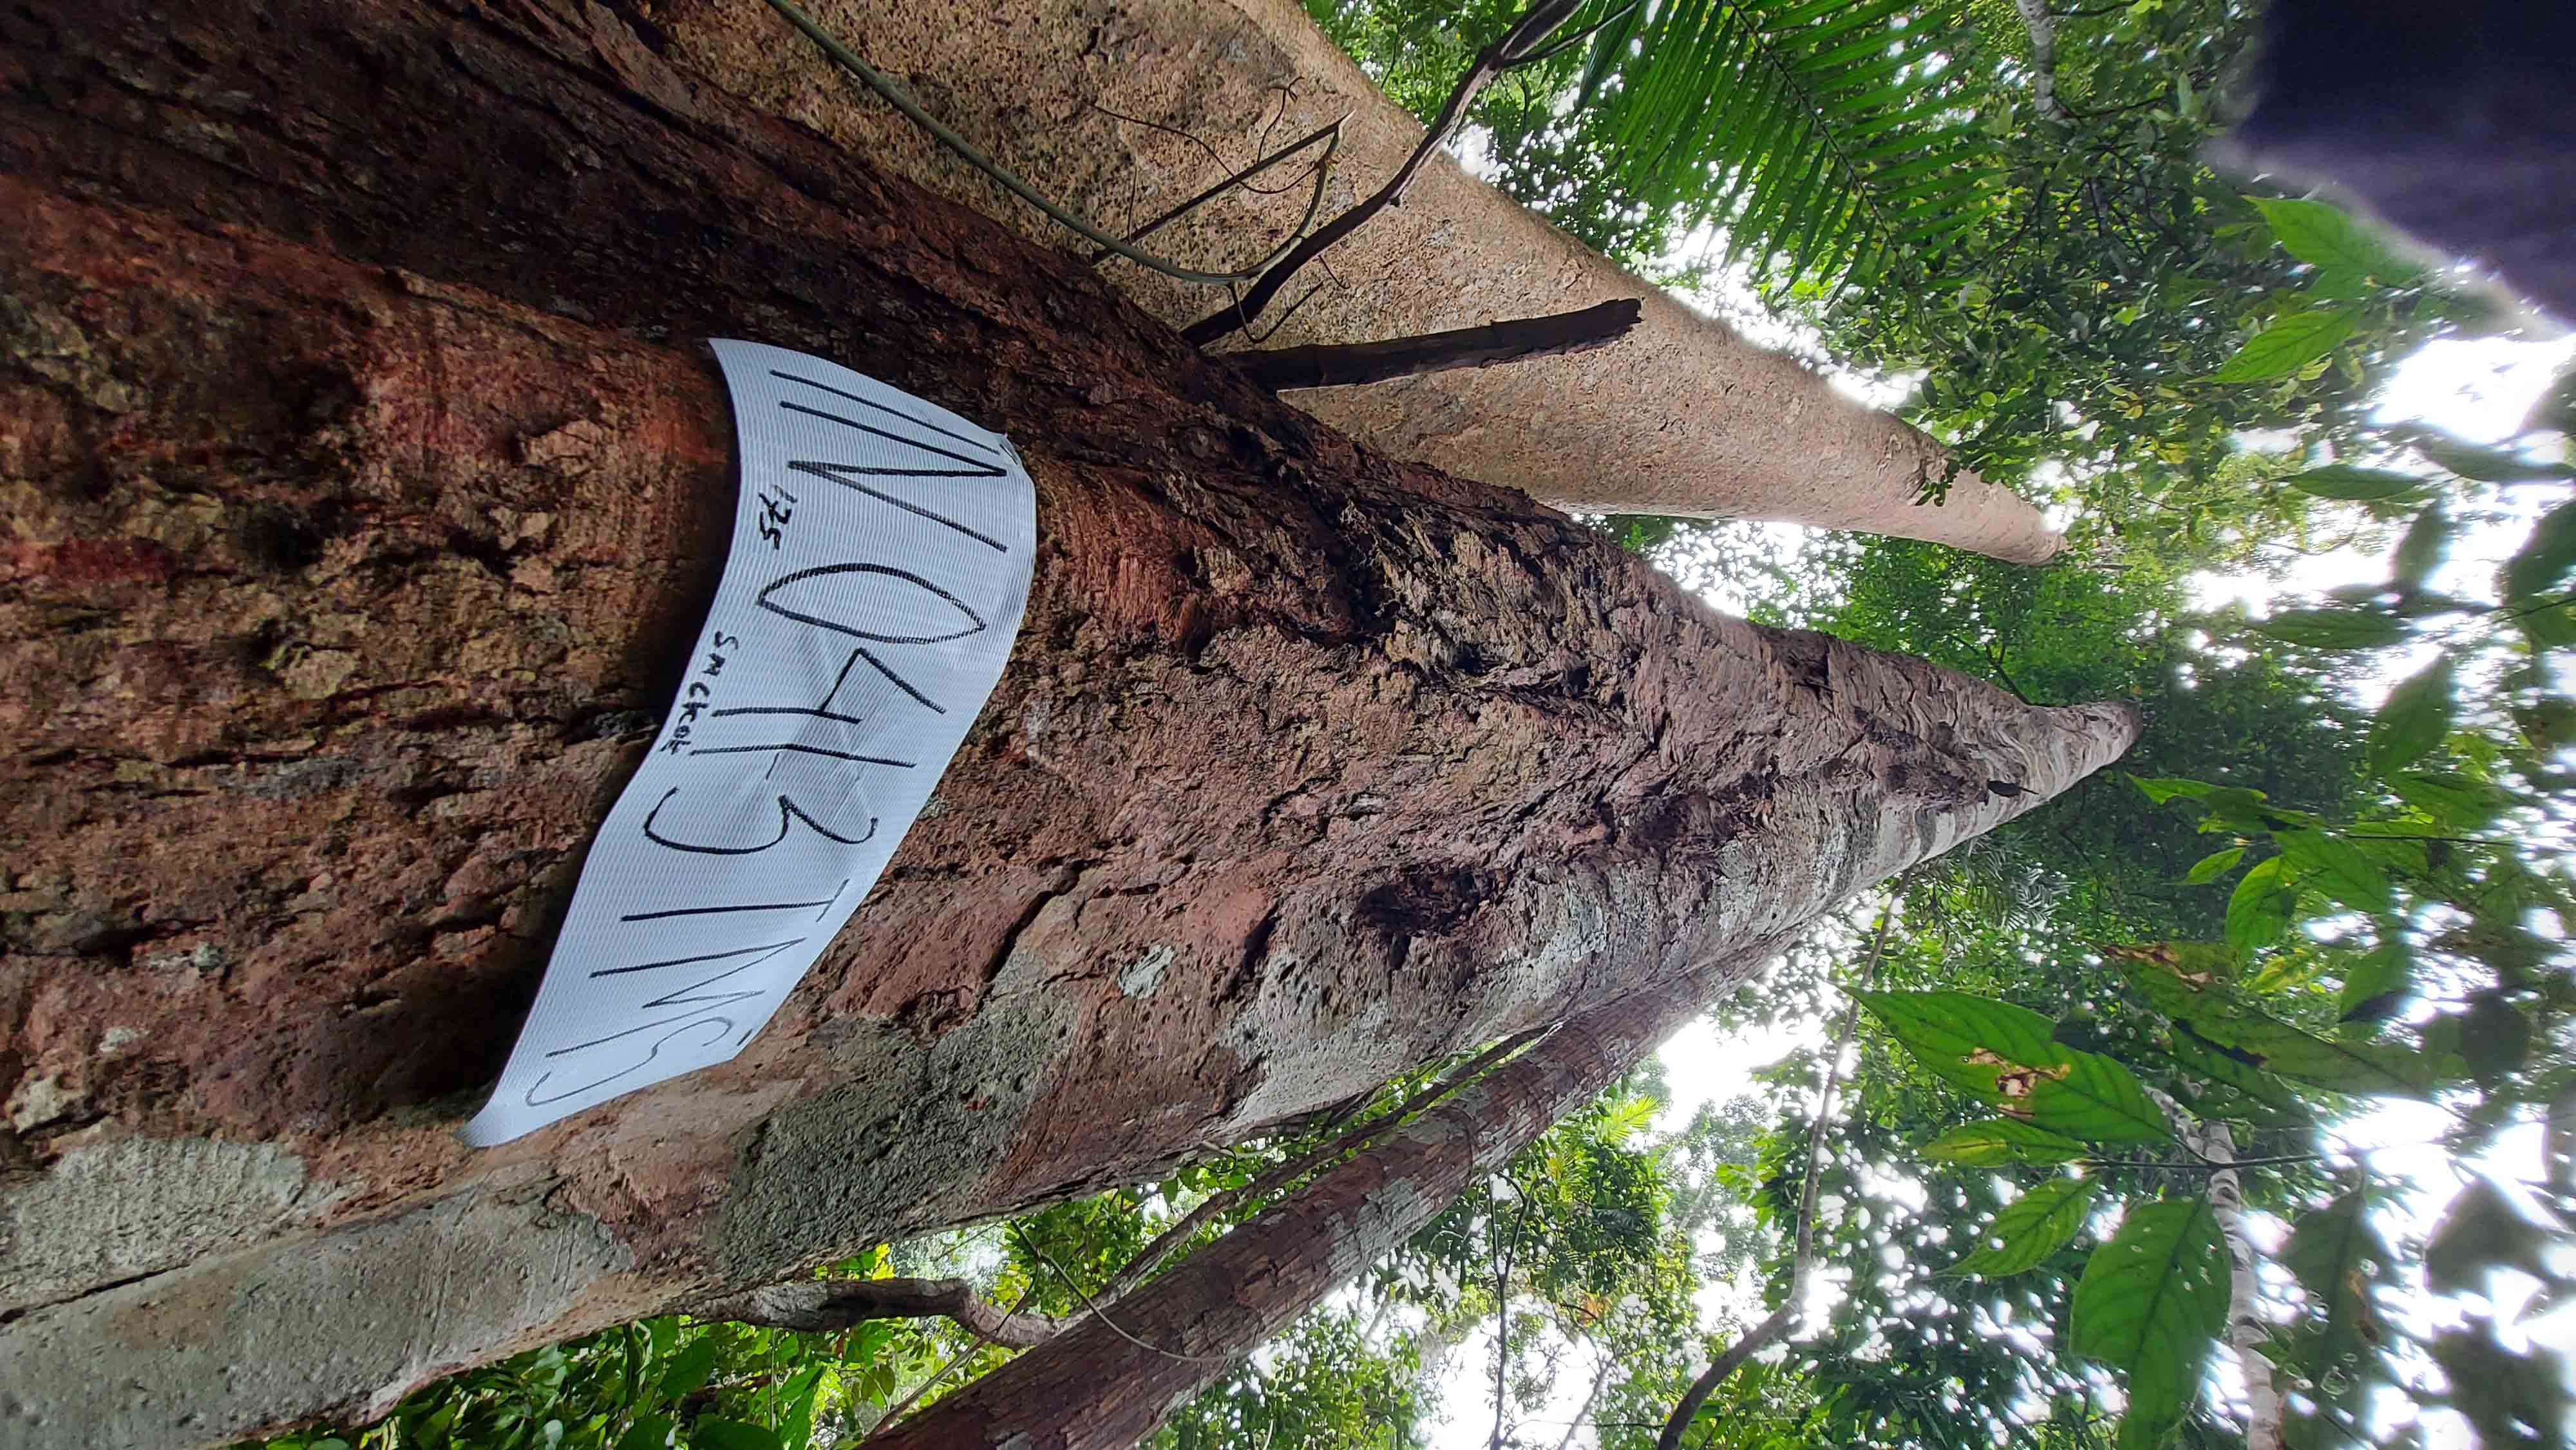 IN 0413 TMS
175
SMCKOK